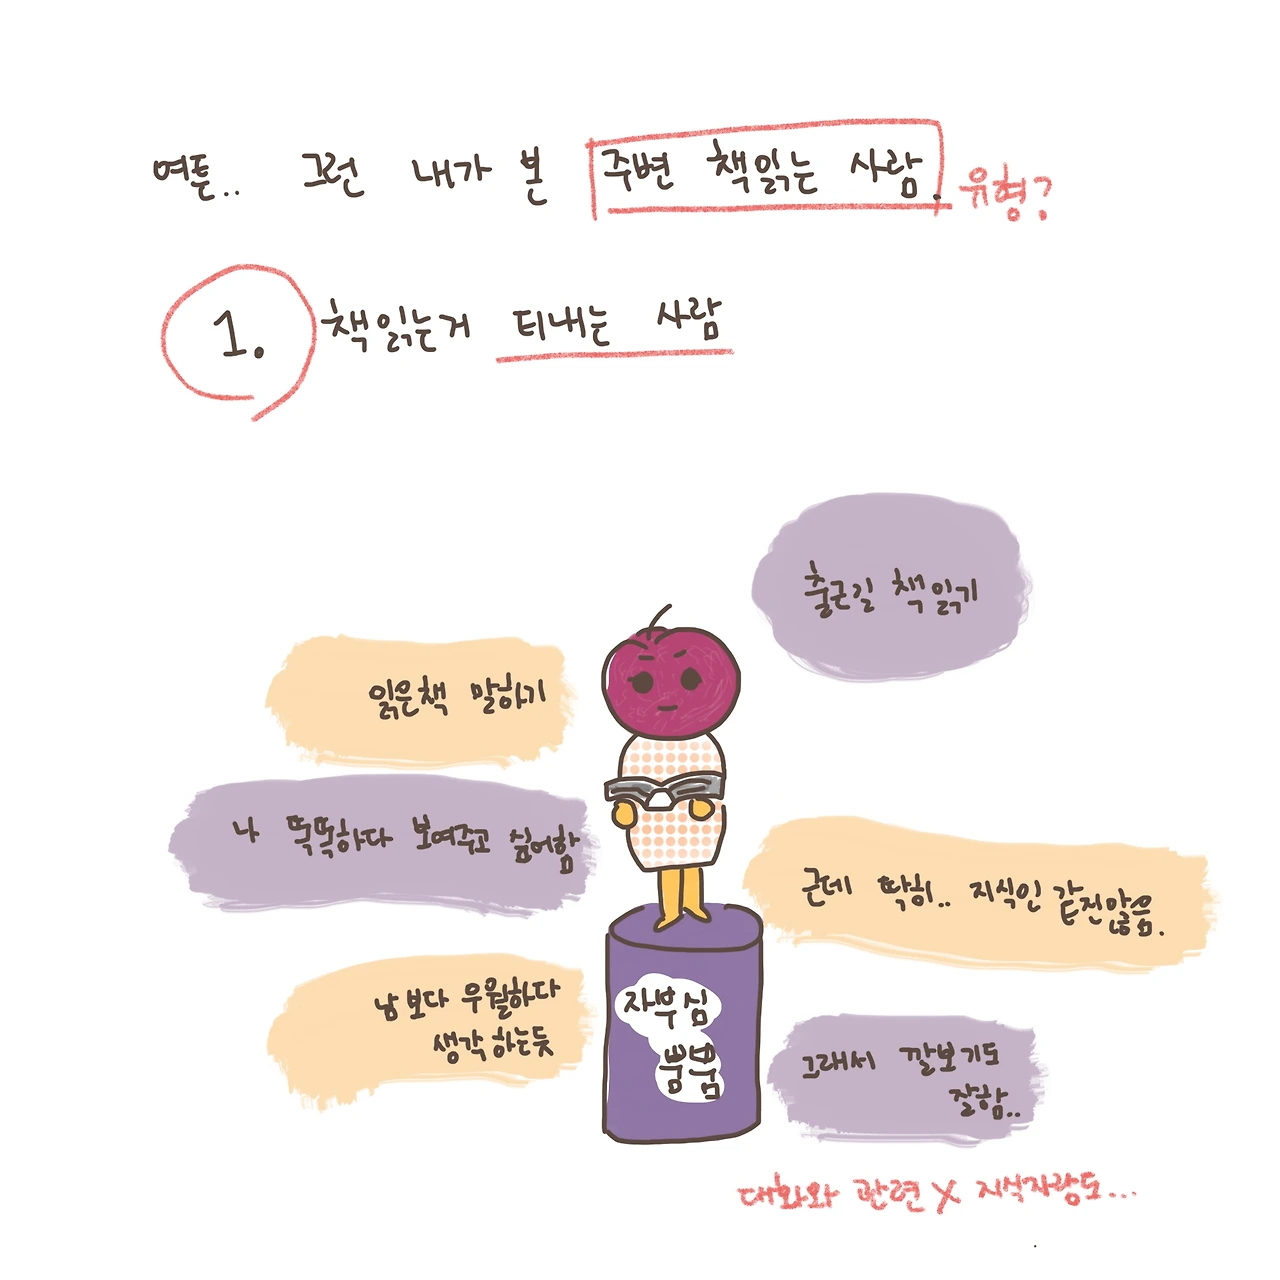 여튼.. 그런 내가 본 주변 책읽는 사람. 유형?
1. 책읽는거 티내는 사람
출근길 책읽기
읽은책 말하기
나 똑똑하다 보여주고 싶어함
근데 딱히.. 지식인 같진않음.
남보다 우월하다
생각하는듯
자부심
뿜뿜
그래서 깔보기도
잘함..
대화와 관련 X 지식자랑도...